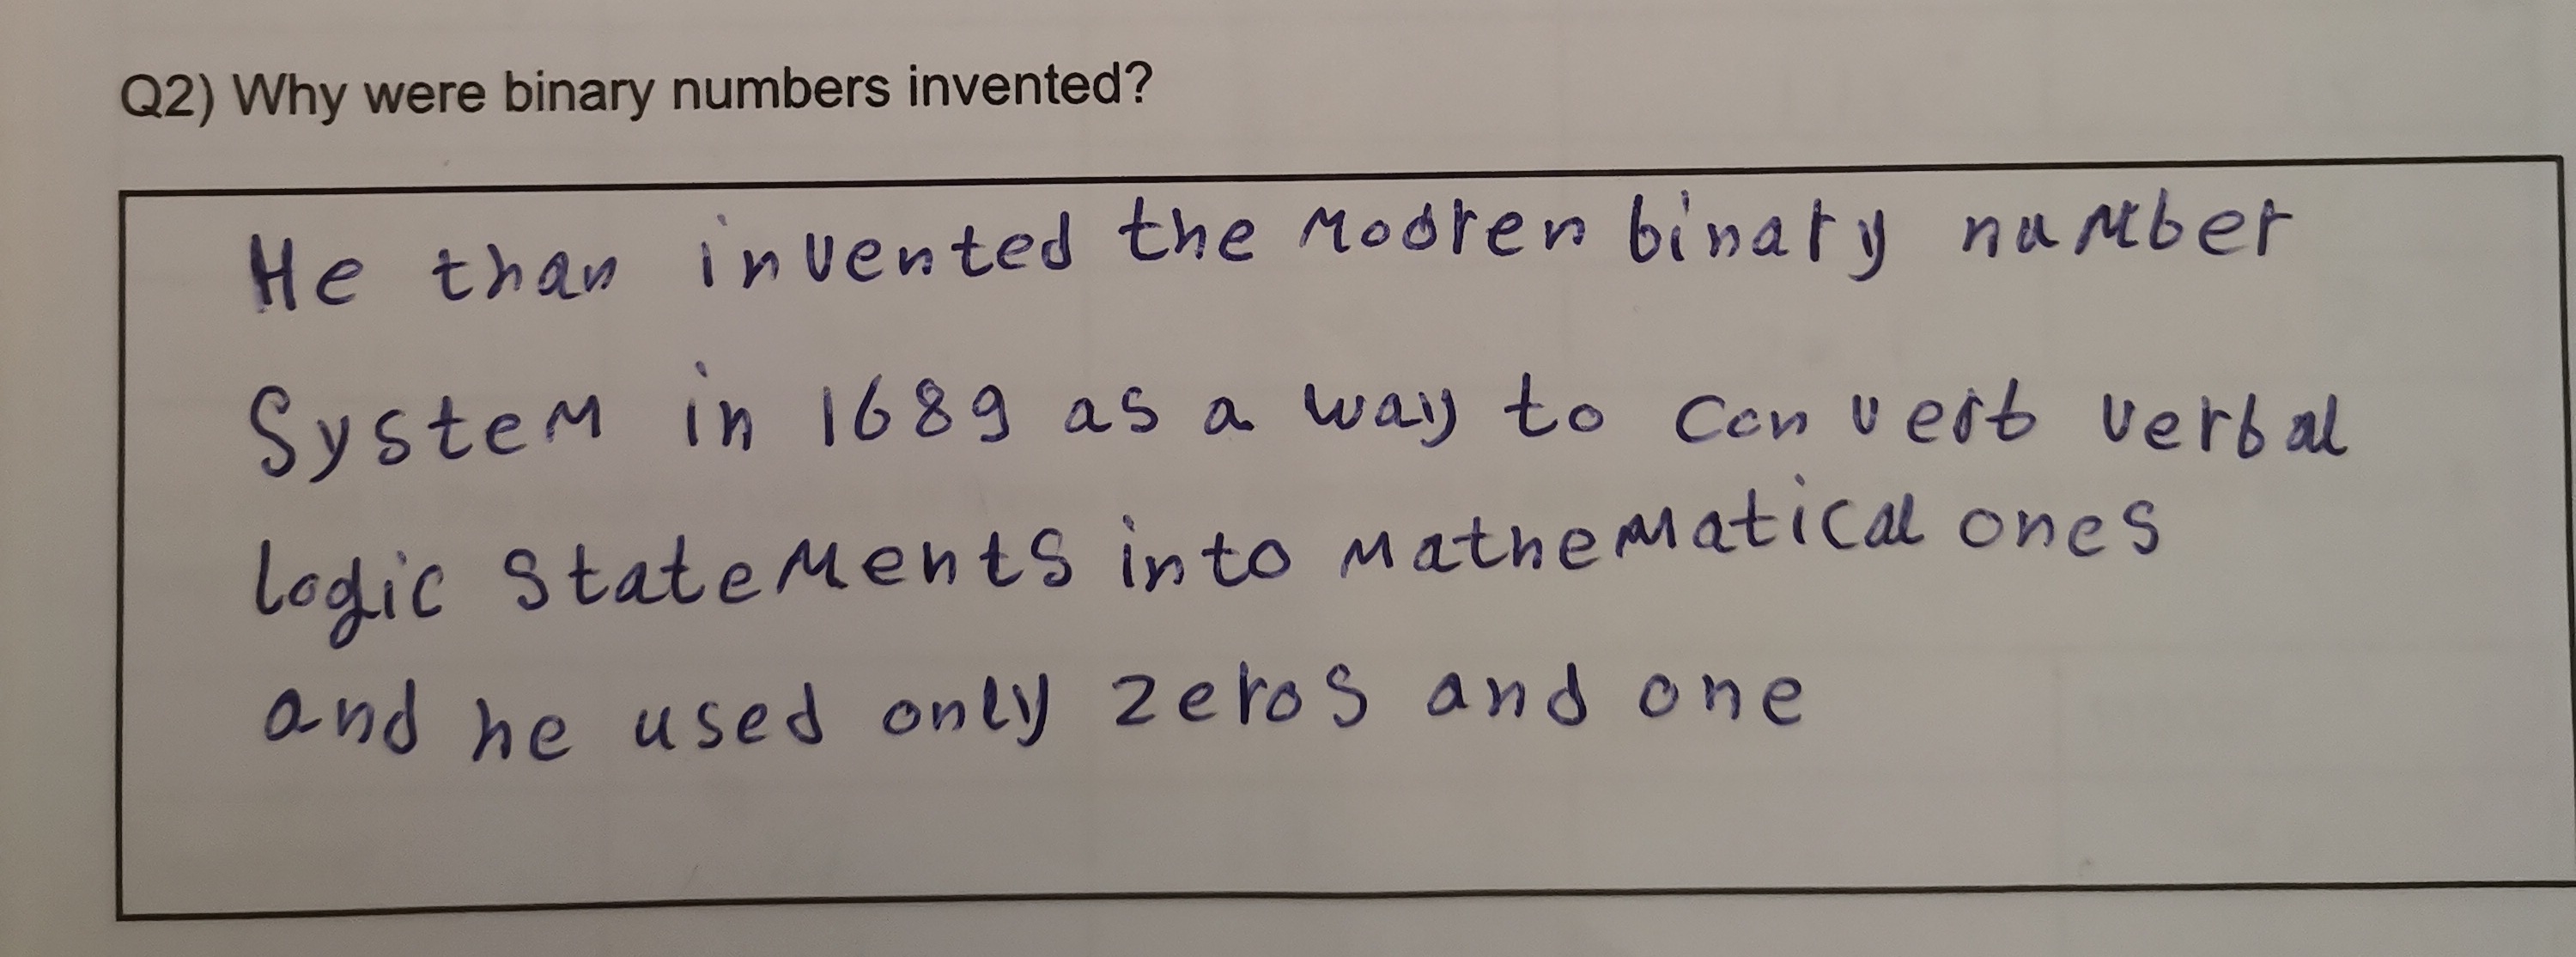 Q2) Why were binary numbers invented?
He than invented the Modren binary number
System in 1689 as a way to convert verbal
logic statements into mathematical ones
and he used only zeros and one